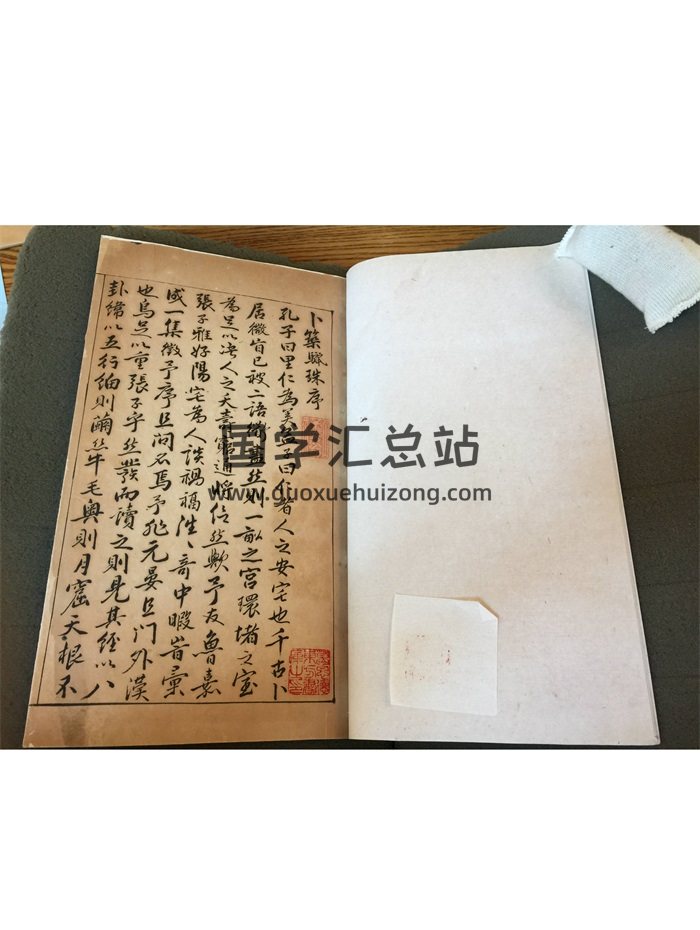 卜築賦珠序
孔子曰里仁為美孟子曰仁者人之安宅也千古卜
居微旨已被二語衛蓋然則一畝之宮環堵之室
為足以決人之夭壽窮通將信然歟予友魯嘉
張子雅好陽宅為人談禍福浩浩奇中暇嘗彙
成一集徵予序且問名焉予非元晏且門外漢
也烏足以重張子乎然發而讀之則見其經以八
卦緯以五行細則繭絲牛毛奧則月窟天根不
国学汇总站
www.guoxuehuizong.com